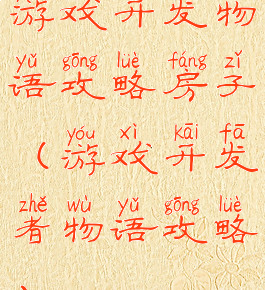 游戏开发物
yǔ gōng lüè fáng zǐ
语攻略房子
yóu xì kāi fā
（游戏开发
zhě wù yǔ gōng lüè
者物语攻略
）